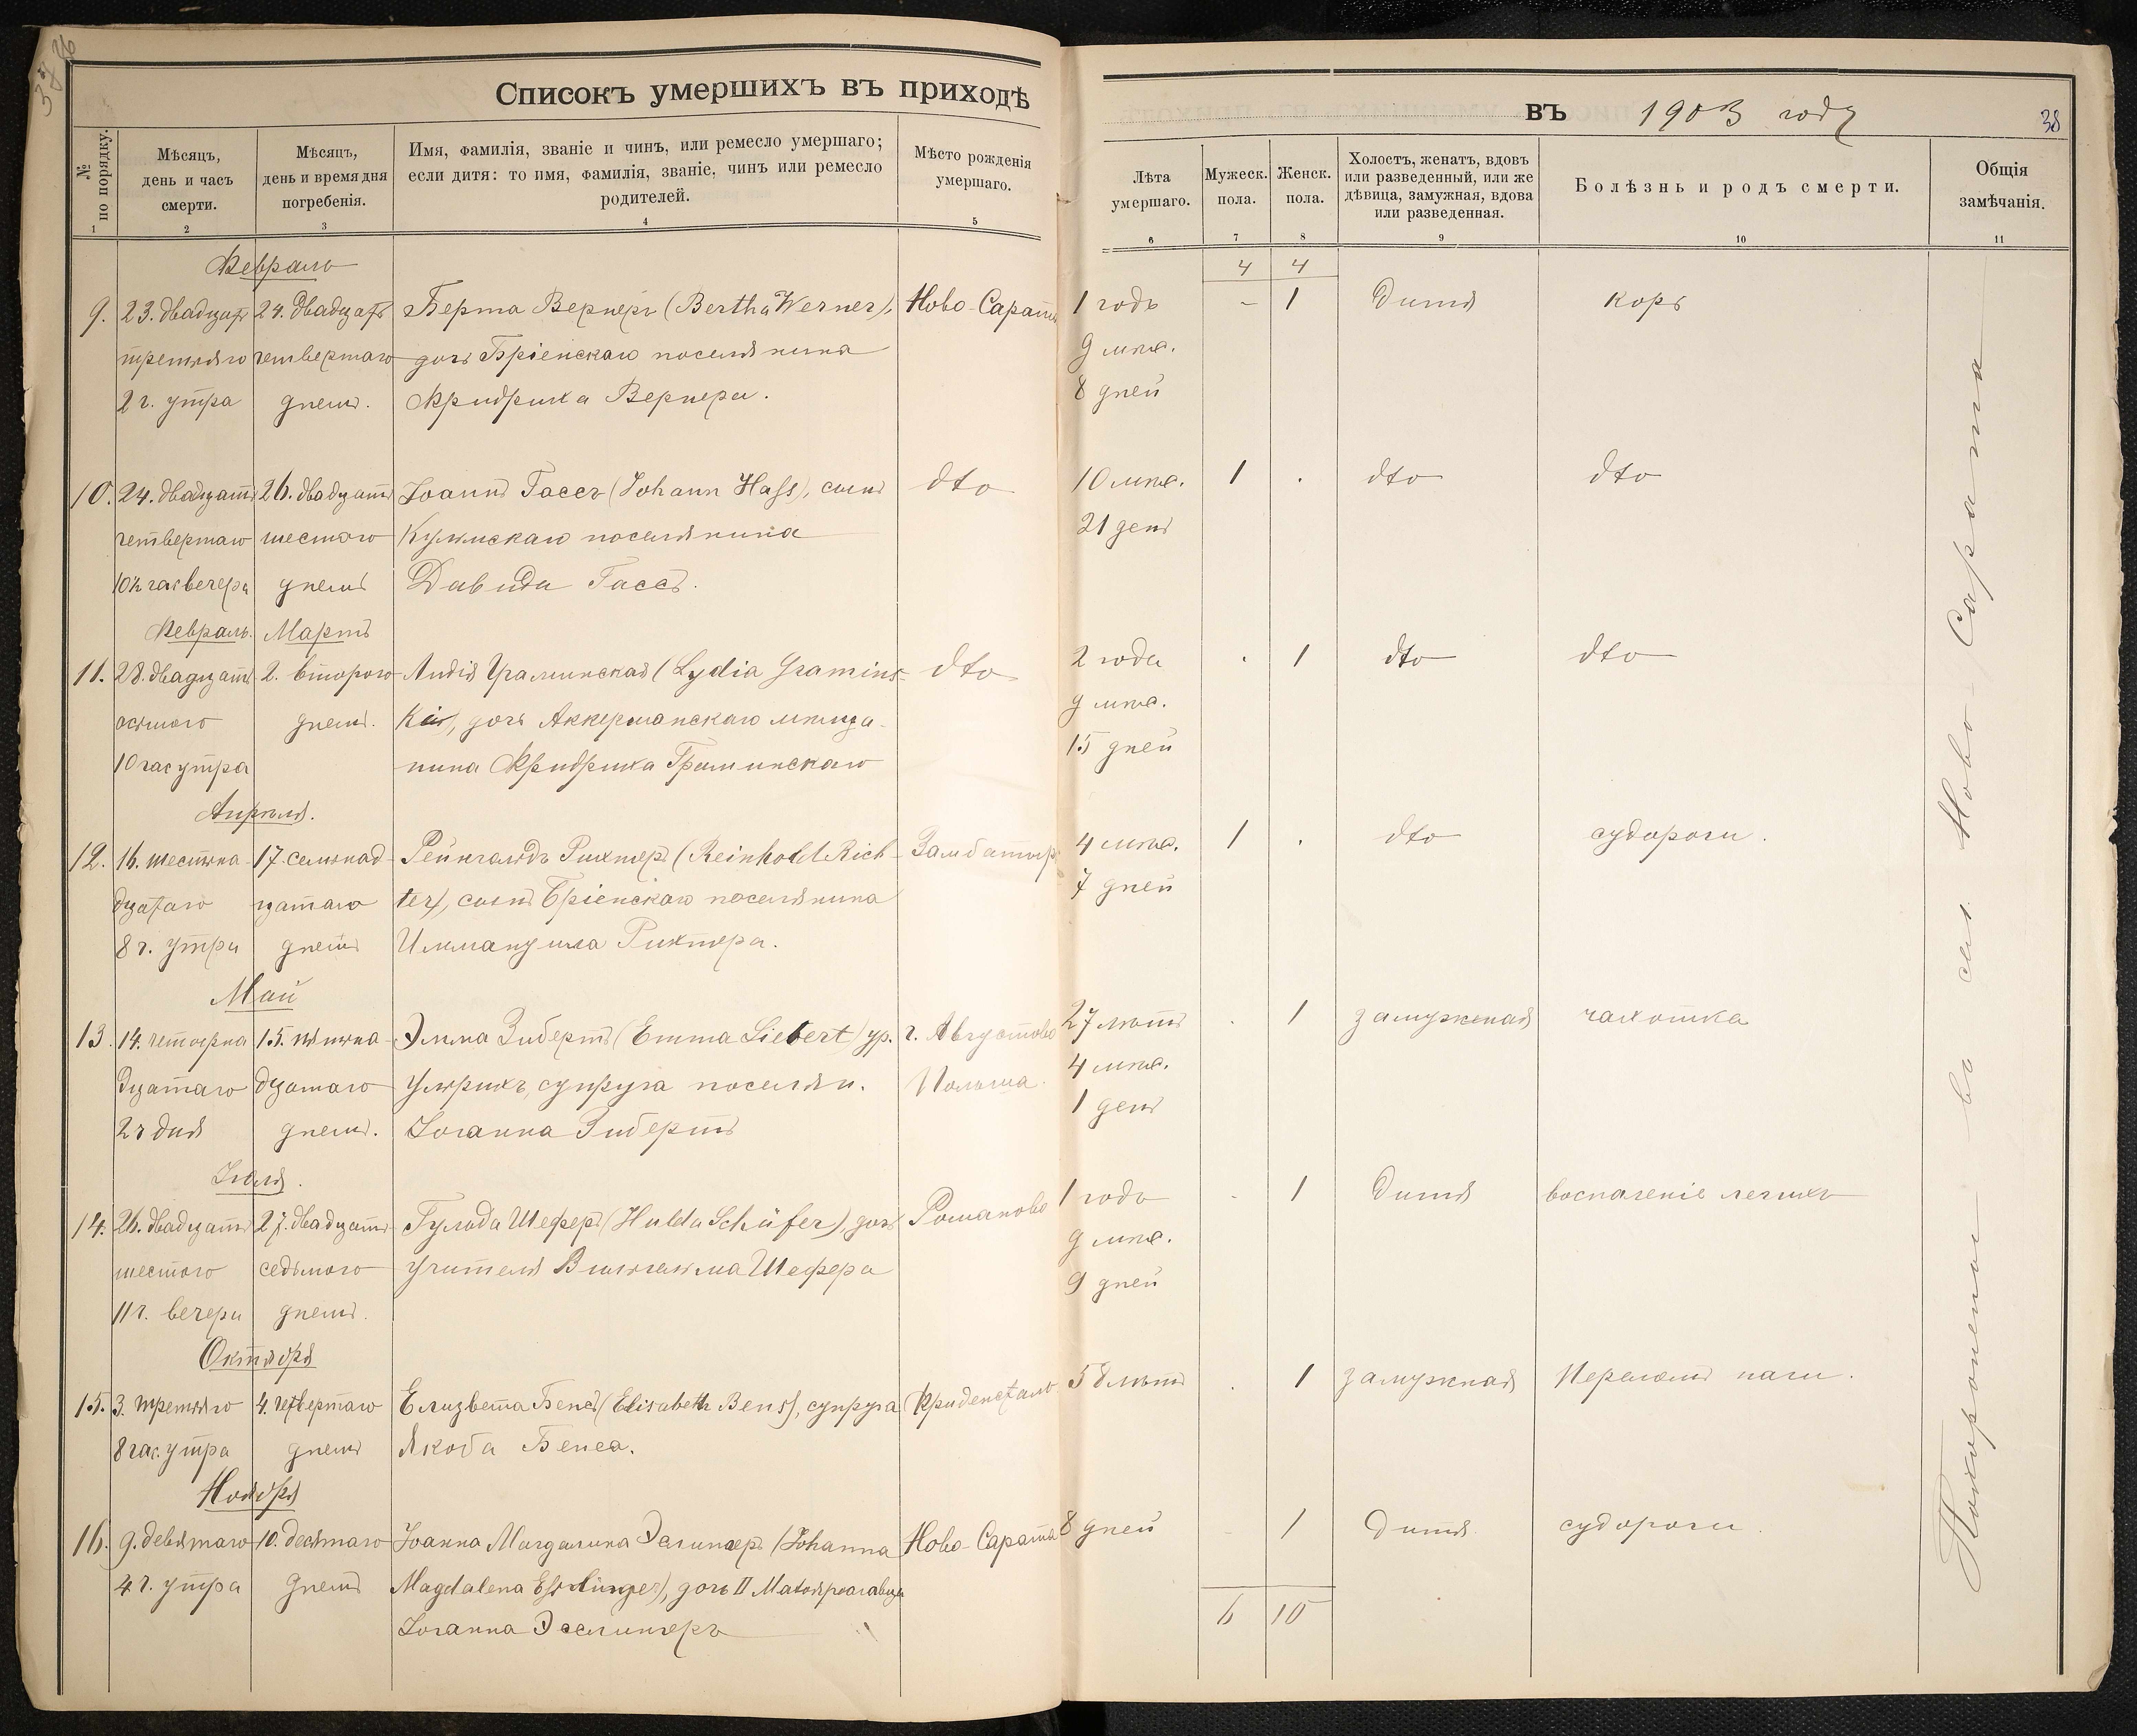 Списокъ умершихъ въ приходѣ
въ 1903 году
38
№ по порядку.
Мѣсяцъ, день и часъ смерти.
Мѣсяцъ, день и время дня погребенія.
Имя, фамилія, званіе и чинъ, или ремесло умершаго; если дитя: то имя, фамилія, званіе, чинъ или ремесло родителей.
Мѣсто рожденія умершаго.
Лѣта умершаго.
Мужеск. пола.
Женск. пола.
Холостъ, женатъ, вдовъ или разведенный, или же дѣвица, замужная, вдова или разведенная.
Болѣзнь и родъ смерти.
Общія замѣчанія.
1 2 3 4 5 6 7 8 9 10 11
Февраль
4 4
9. 23. двадцать 24. двадцать Берта Вернеръ (Bertha Werner), Ново-Сарата 1 годъ - 1 дитя корь
третьяго четвертаго дочь Бріенскаго поселянина 9 мѣс.
2 ч. утра днемъ. Фридриха Вернера. 8 дней
10. 24. двадцать 26. двадцать Іоаннъ Гассъ (Johann Hass), сынъ dto 10 мѣс. 1 . dto dto
четвертаго шестого Кульмскаго поселянина 21 день
10½ час вечера днемъ Давида Гассъ.
Февраль. Мартъ
11. 28. двадцать 2. второго Лидія Граминская (Lydia Gramins- dto 2 года . 1 dto dto
осьмого днемъ. kaя), дочь Аккерманскаго мѣща- 9 мѣс.
10 час утра нина Фридриха Граминскаго 15 дней
Апрѣля.
12. 16. шестна- 17. семьнад- Рейнгольдъ Рихтеръ (Reinhold Rich- Замбатыр 4 мѣс. 1 . dto судороги.
дцатаго цатаго ter), сынъ Бріенскаго поселянина 7 дней
8 ч. утра днемъ Иммануила Рихтера.
Май
13. 14. четырна 15. пятьна- Эмма Зибертъ (Emma Siebert) ур. г. Августово 27 лѣтъ . 1 замужная чахотка
дцатаго дцатаго Ульрихъ, супруга поселян. Польша. 4 мѣс.
2 ч дня днемъ. Іоганна Зибертъ 1 день
Іюля.
14. 26. двадцать 27. двадцать Гульда Шеферъ (Hulda Schäfer), дочь Романово 1 годъ - 1 дитя воспаленіе легкихъ
шестого седьмого учителя Вильгельма Шефера 9 мѣс.
11 ч. вечера днемъ. 9 дней
Октября
15. 3. третьяго 4. четвертаго Елизвета Бенсъ (Elisabeth Bens), супруга Фриденсталь 58 лѣтъ . 1 замужная Переломъ ноги.
8 час. утра днемъ Якоба Бенса.
Ноября
16. 9. девятаго 10. десятаго Іоанна Магдалина Эслингеръ (Johanna Ново-Сарата 8 дней - 1 дитя судороги.
4 ч. утра днемъ Magdalena Esslinger), дочь II Малоярославца
Іоганна Эсслингеръ
6 10
Похоронены въ сел. Ново-Сарата